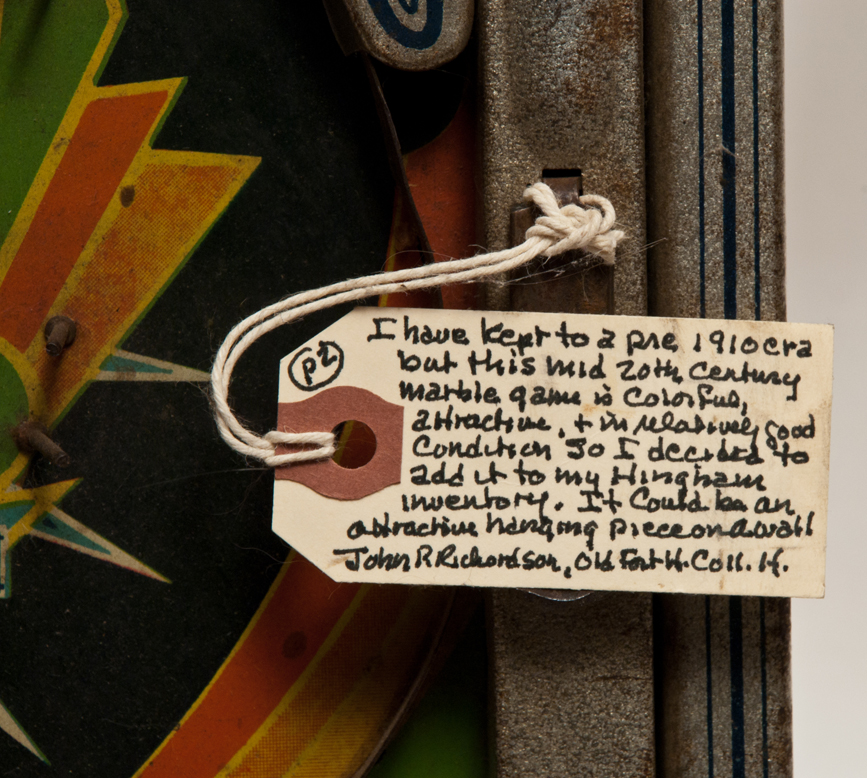 p2
I have kept to a pre 1910 era
but this mid 20th century
marble game is colorful,
attractive, + in relatively good
condition so I decided to
add it to my Hingham
inventory. It could be an
attractive hanging piece on a wall
John R Richardson, Old Fort H. Coll. H.